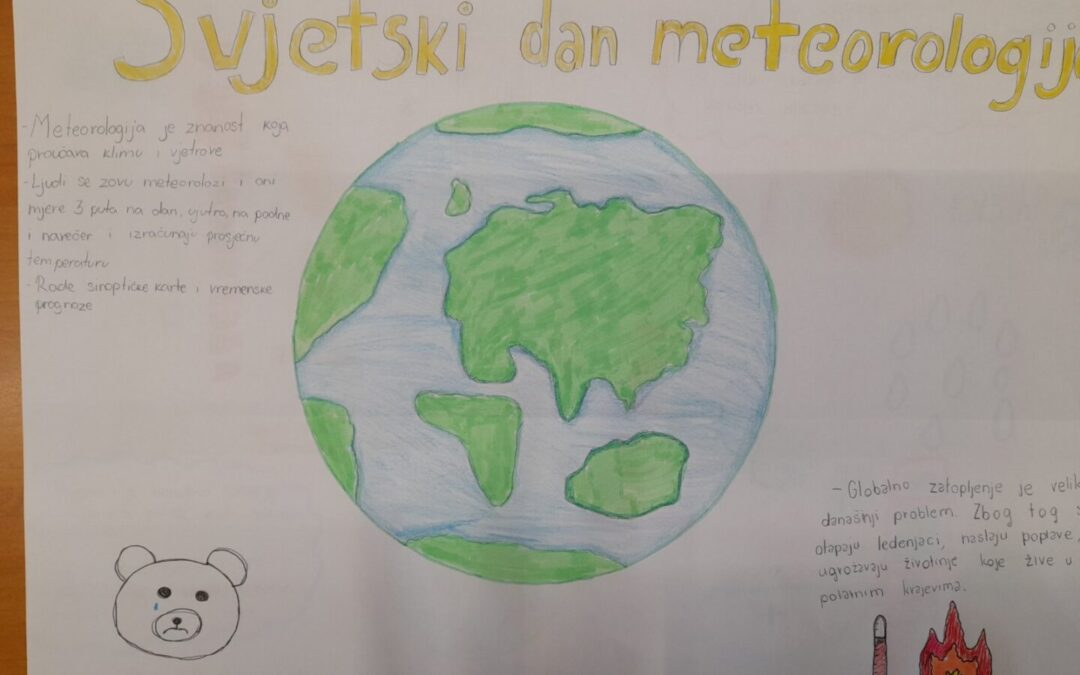 Svjetski dan meteorologije
- Meteorologija je znanost koja
proučava klimu i vjetrove
- Ljudi se zovu meteorolozi i oni
mjere 3 puta na dan, ujutro, na podne
i navečer i izračunaju prosječnu
temperaturu
- Rade sinoptičke karte i vremenske
prognoze
- Globalno zatopljenje je velik
današnji problem. Zbog tog s
otapaju ledenjaci, nastaju poplave,
ugrožavaju životinje koje žive u
polarnim krajevima.